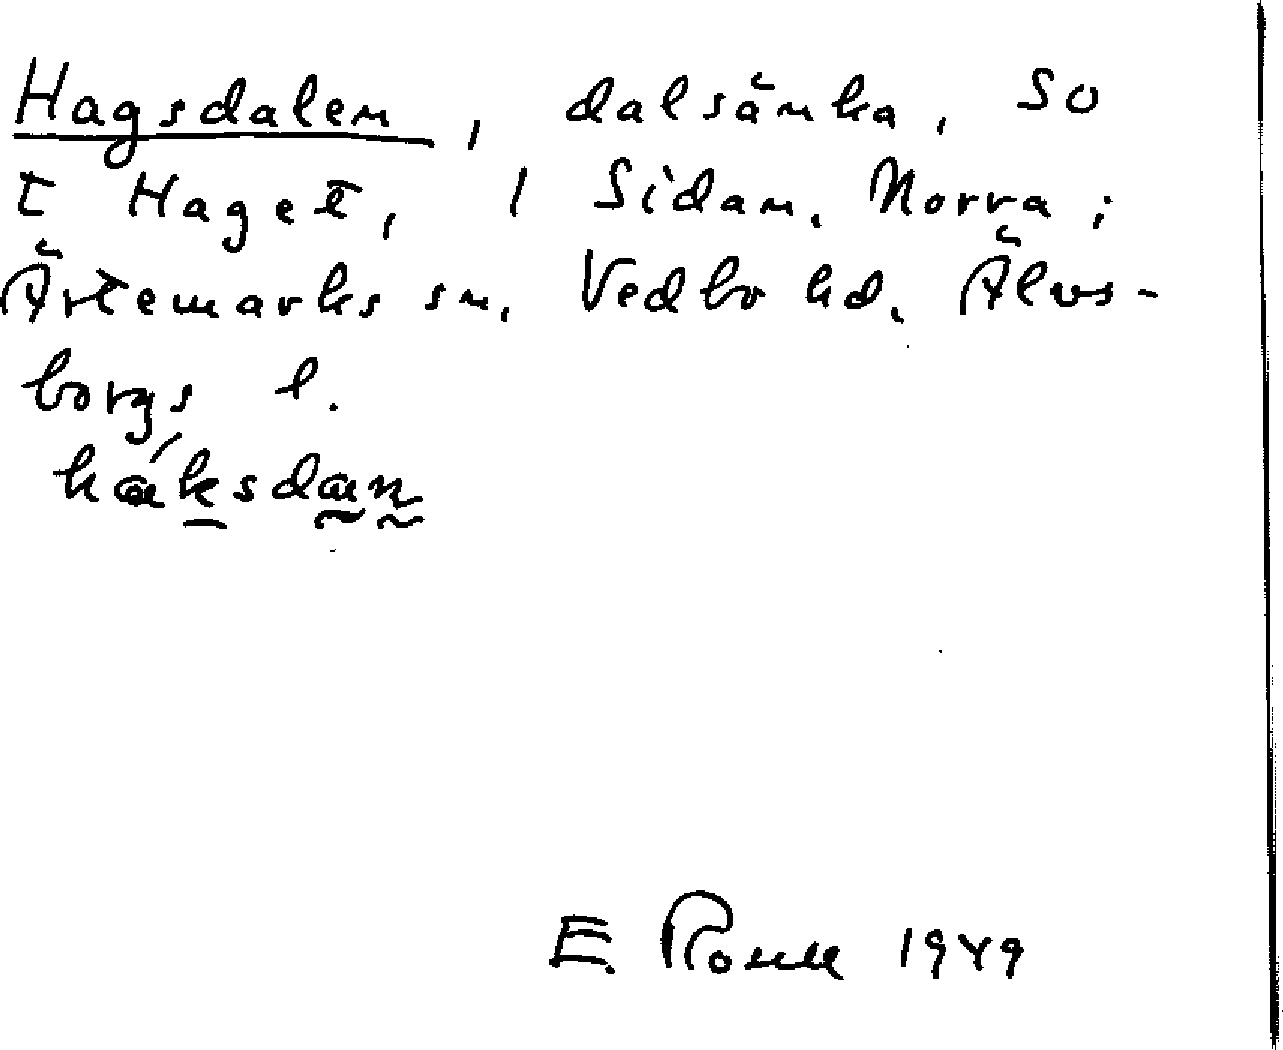 Hagsdalen, dalsänka, SO
t Haget, 1 Sidan. Norra;
Ärtemarks sn. Vedbo hd. Älvs-
borgs l.
háksdan
E. 1949